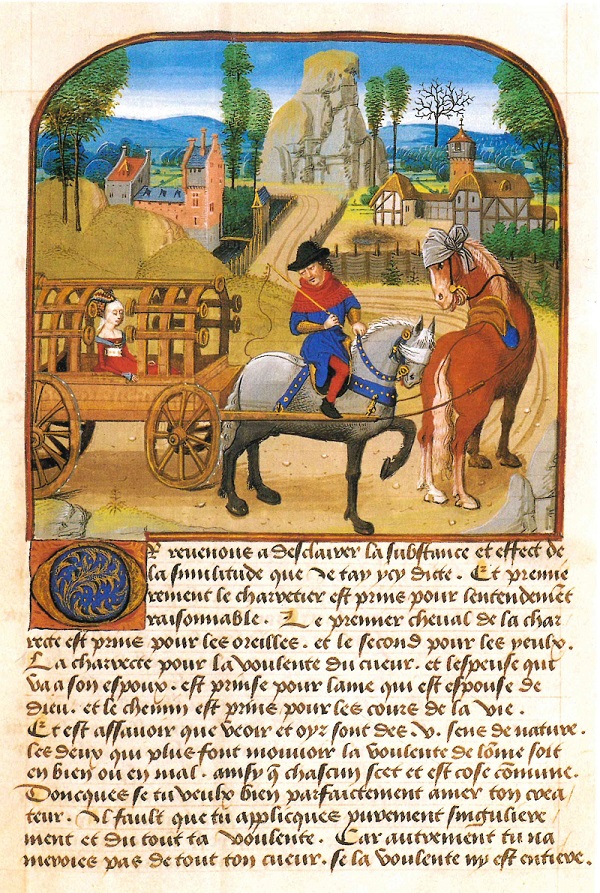 Or revenons a desclairer la substance et effect de
la similitude que Je tay ycy dicte. Et premie
rement le charretier est prins pour lentendemēt
raisonnable. Le premier cheual de la char
recte est prins pour les oreilles. et le second pour les yeulx.
La charrecte pour la voulente du cueur. et lespeuse qui
va a son espoux. est prinse pour lame qui est espouse de
dieu. et le chemin est prins pour les cours de la vie.
Et est assauoir que veoir et oyr sont des .v. sens de nature.
les deux qui plus font mouuoir la voulente de lōme soit
en bien ou en mal. ainsy q̄ chascun scet et est cose cōmune.
Doncques se tu veulx bien parfaictement amer ton crea
teur. Il fault que tu applicques purement singuliere
ment et du tout ta voulente. Car autrement tu na
meroies pas de tout ton cueur. se la voulente ny est entiere.